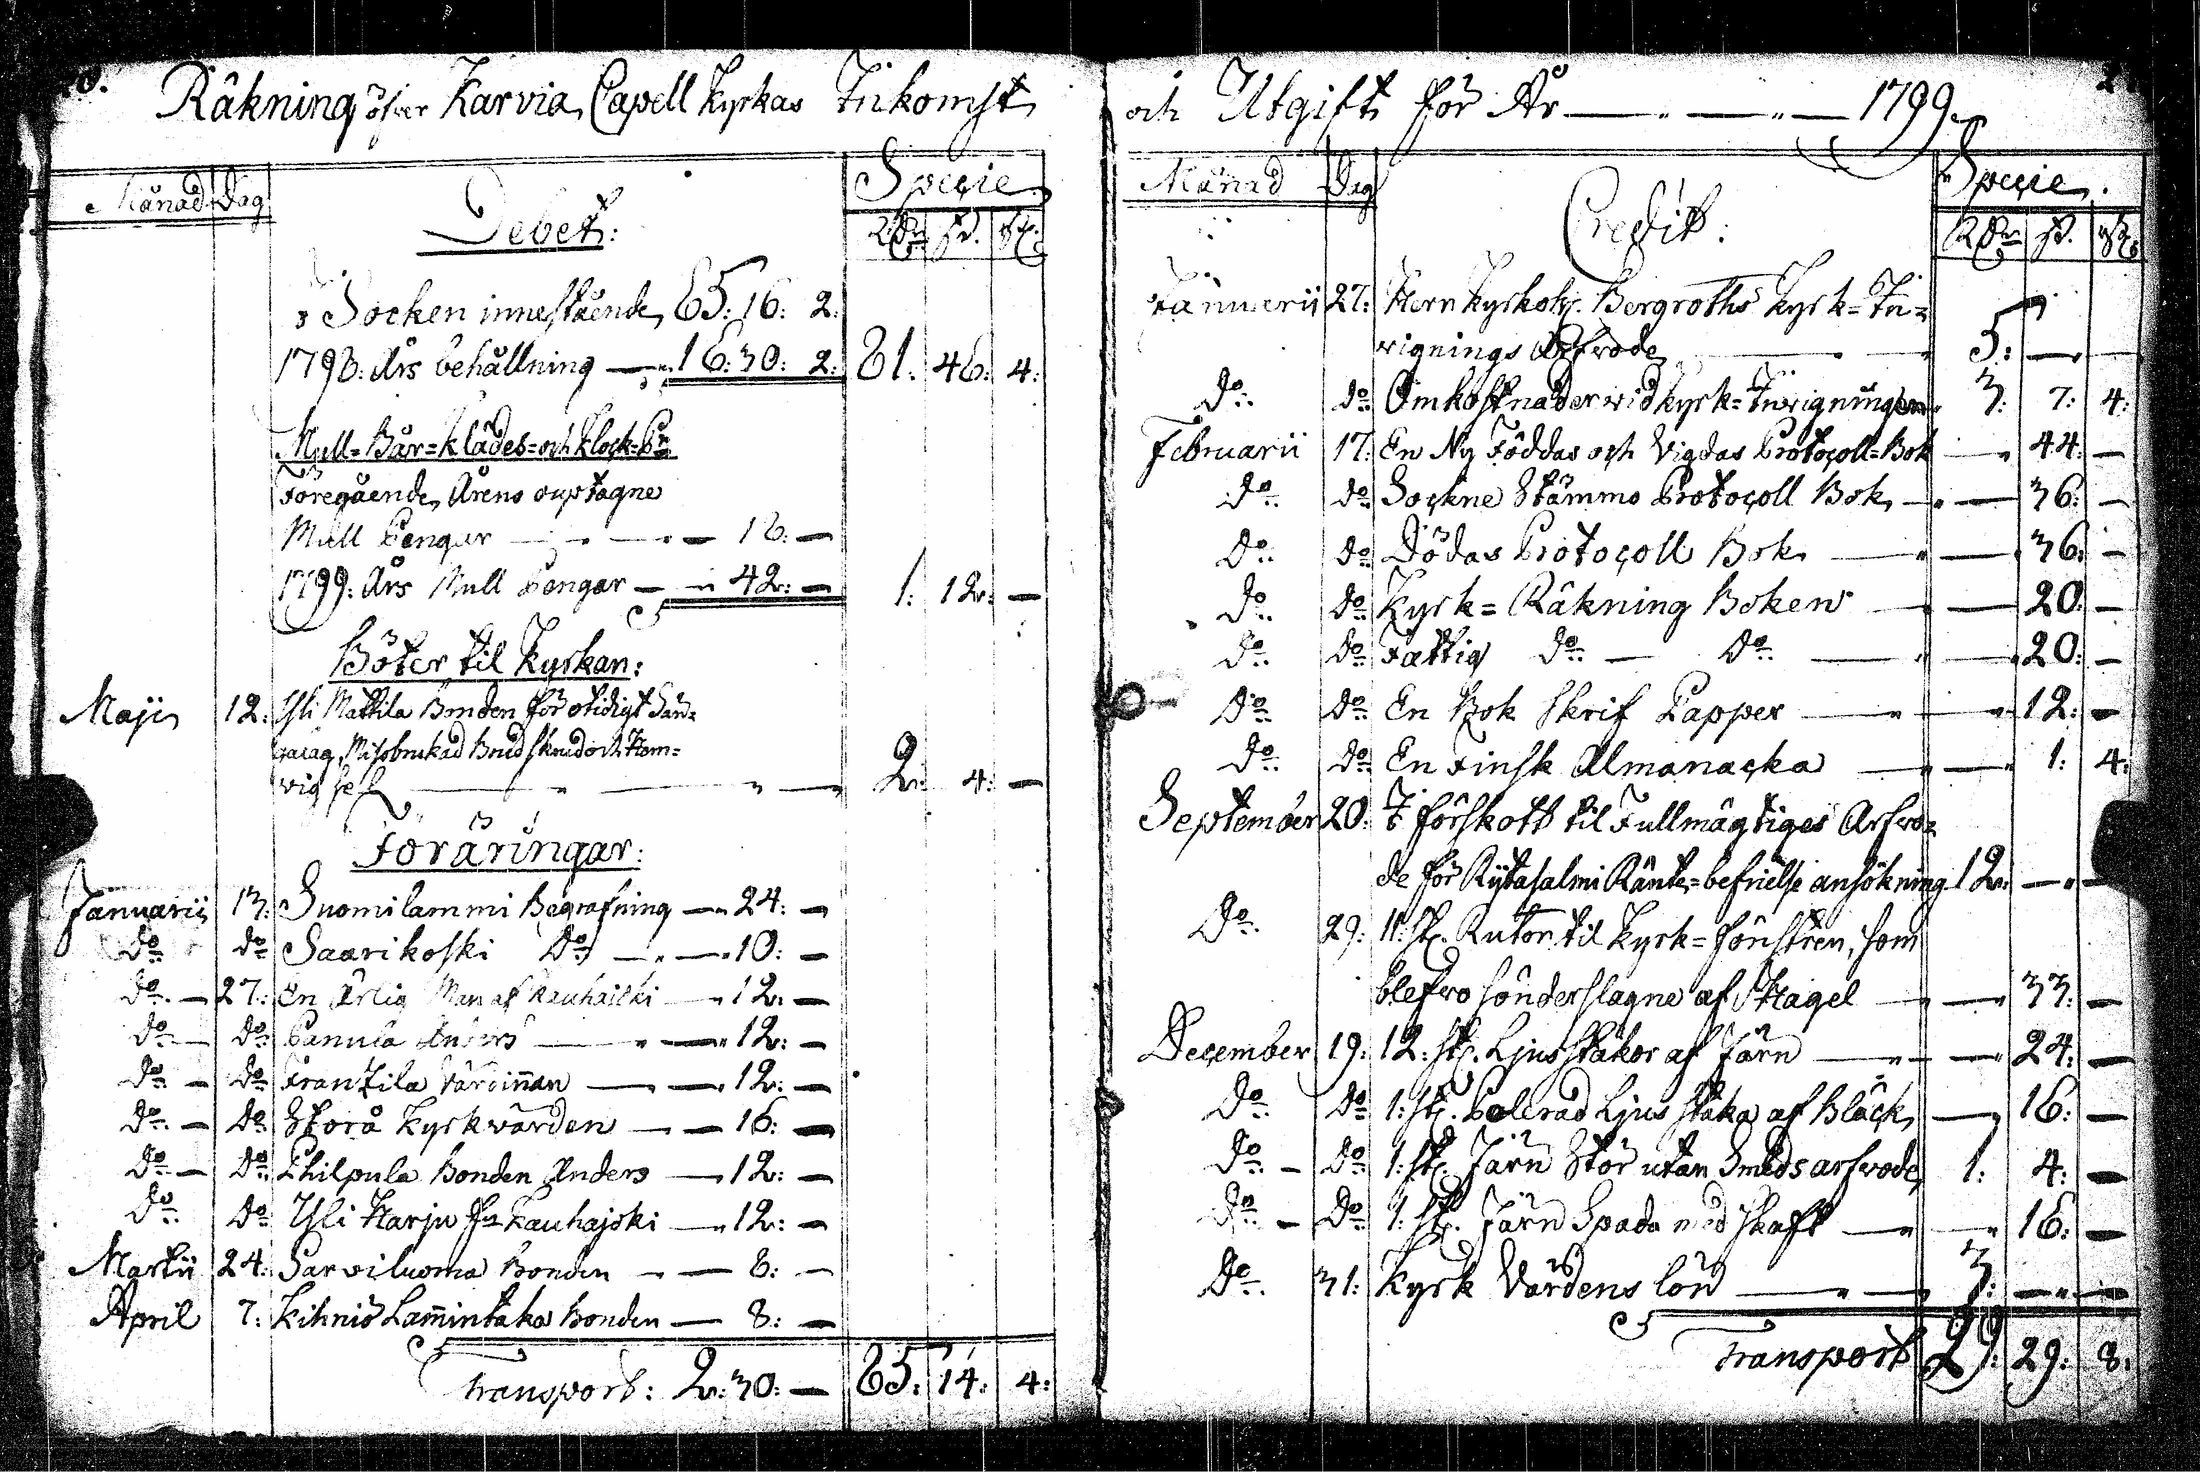 8.
Räkning öfver Karvia Capell Kyrkas Inkomst
Månad Dag Debet: Specie
Rdr ß. rst.
i Socken innestående 65: 16: 2:
1798: Års behållning — 16: 30: 2: 81: 46: 4:
Mull- Bår-klädes- och Klock-Pr
Föregående Årens ouptagne
Mull Pengar — 18: —
1799: Års Mull Pengar — 42: — 1: 12: —
Böter til Kyrkan:
Maji 12: Yli Mattila Bonden för otidigt
Missbrukad Brudskrud och Hem-
vigsel — 2: 4: —
Föräringar:
Januarii 13: Suomilammi Begrafning — 24: —
do do Saarikoski do — 10: —
do — 27: En Ärlig Man af Kauhajocki — 12: —
do — do Panula Anders — 12: —
do — do Frantzila Värdinnan — 12: —
do — do Storå Kyrkvärden — 16: —
do — do Philpula Bonden Anders — 12: —
do do Yli Harju fr Kauhajoki — 12: —
Martii 24: Sarviluoma Bonden — 8: —
April 7: Kihniö Lamintaka Bonden — 8: —
Transport: 2: 30: — 85: 14: 4:
och Utgift för År — 1799.
Månad Dag Credit: Specie.
Rdr ß. rst.
Januarii 27: Herr Kyrkoh. Bergroths Kyrk-In-
vignings Arfvode — 5: — —
do do Omkostnader wid Kyrk-Invigningen 3: 7: 4:
Februarii 17: En Ny Föddas och Vigdas Protocoll-Bok — 44: —
do do Sockne Stämmo Protocoll Bok — 36: —
do do Dödas Protocoll Bok — 36: —
do do Kyrk-Räkning Boken — 20: —
do do Fattig do — do — 20: —
do do En Bok Skrif Papper — 12: —
do do En Finsk Almanacka — 1: 4:
September 20: I förskott til Fullmägtiges Arfvo-
de för Rytasalmi Ränte-befrielse ansökning 12: — —
do 29: 11: st. Rutor til Kyrk-fönstren, som
blefvo sönderslagne af Hagel — 33: —
December 19: 12: st. Ljusstakar af Järn — 24: —
do do 1: st. Polerad Ljusstaka af Bläck — 16: —
do — do 1: st. Järn Stör utan Smedsarfvode 1: 4: —
do — do 1: st. Järn Spada med skaft — 16: —
do 31: Kyrk Värdens lön — 3: — —
Transport 29: 29: 8: